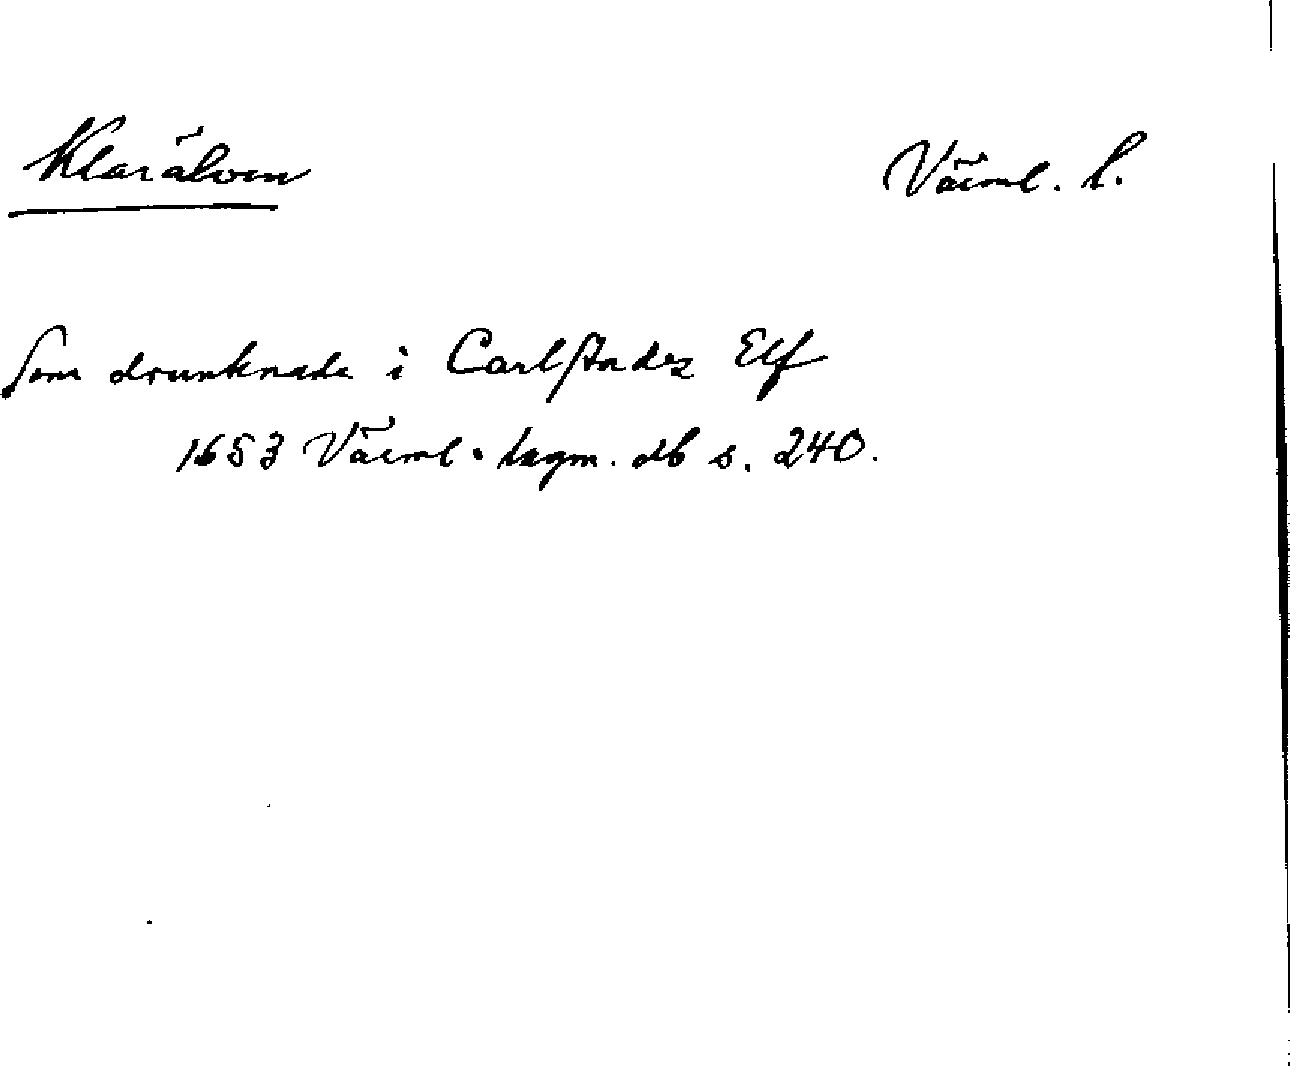 Klarälven Värml. l.
Som drunknade i Carlstadez Elf
1653 Värml. lagm. db s. 240.